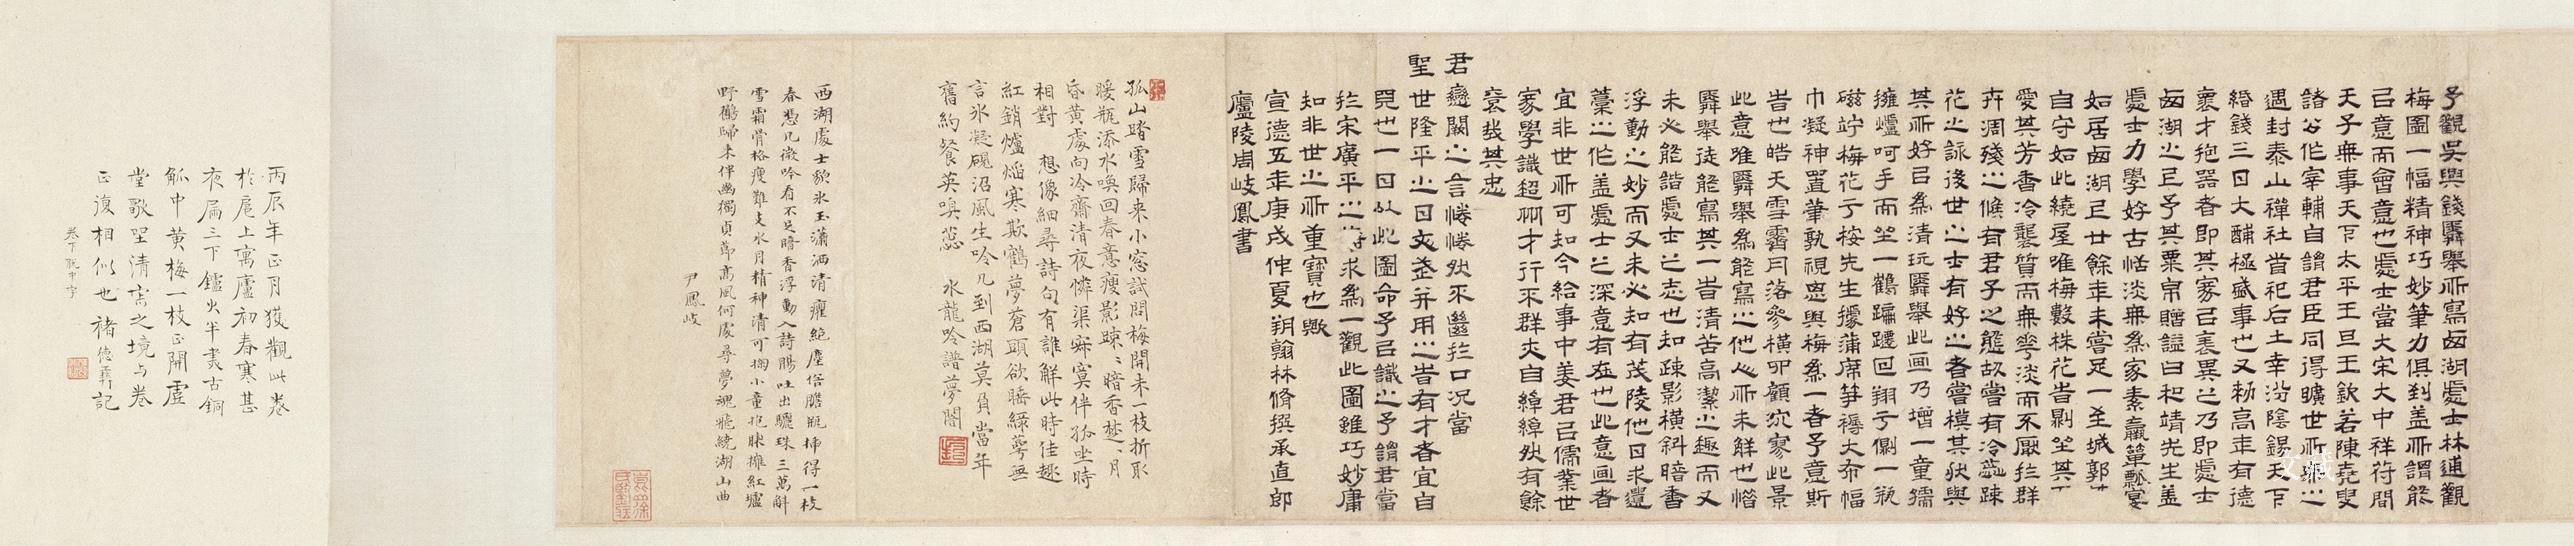 予觀吳興錢舜舉所寫西湖處士林逋觀
梅圖一幅精神巧妙筆力俱到蓋所謂能
己意而會意也處士當大宋大中祥符間
天子無事天下太平王旦王欽若陳堯叟
諸公作宰輔自謂君臣同得曠世所無之
遇封泰山禪社首祀后土幸汾陰錫天下
緡錢三日大酺極盛事也又勑高年有德
裹才抱器者即其家以表異之乃即處士
西湖之上予其粟帛贈諡曰和靖先生蓋
處士力學好古恬淡無為家素羸簞瓢宴
如居西湖上廿餘年未嘗足一至城郭
自守如此繞屋唯梅數株花皆剝坐其下
愛其芳香冷襲質而無華淡而不厭於群
卉凋殘之候有君子之態故嘗有冷蕊疎
花之詠後世之士有好之者嘗模其狀與
其所好以為清玩舜舉此画乃增一童孺
擁爐呵手而坐一鶴蹁躚回翔于側一瓶
磁竚梅花于桉先生據蒲席笋褥大布幅
巾凝神置筆孰視思與梅為一者予意斯
昔也皓天雪霽月落參橫卬顧寂寥此景
此意唯舜舉為能寫之他人所未解也惜
舜舉徒能寫其一昔清苦高潔之趣而又
未必能諧處士之志也知疎影橫斜暗香
浮動之妙而又未必知有茂陵他日求遺
藁之作蓋處士之深意有在也此意画者
宜非世所可知今給事中姜君以儒業世
家學識超卅才行不群夫自綽綽然有餘
裒哉其忠
君戀闕之言惓惓然不釁於口況當
聖世隆平之日文武并用之昔有才者宜自
見也一日以此圖命予以識之予謂君當
於宋廣平之 求為一觀此圖雖巧妙庸
知非世之所重寶也歟
宣德五年庚戌仲夏朔翰林脩撰承直郎
廬陵周岐鳳書
孤山踏雪歸来小窓試問梅開未一枝折取
暖瓶添水喚回春意瘦影踈〻暗香楚〻月
昏黄處向冷齋清夜憐渠寂寞伴孤坐時
相對　想像細尋詩句有誰解此時佳趣
紅銷爐熖寒欺鶴夢蒼頭欲睡綠萼無
言氷凝硯沼風生吟几到西湖莫負當年
舊約餐英嗅蕊　水龍吟譜夢闇
西湖處士貌氷玉瀟洒清癯絶塵俗膽瓶揷得一枝
春凭几微吟看不足暗香浮動入詩腸吐出驪珠三萬斛
雪霜骨格瘦難支水月精神清可掬小童抱膝擁紅爐
野鶴歸来伴幽獨貞節高風何處尋夢魂飛繞湖山曲
尹鳳岐
丙辰年正月獲觀此卷
於扈上寓廬初春寒甚
夜扃三下鑪火半熏古銅
觚中黄梅一枝正開虚
堂歌坐清寒之境与卷
正復相似也褚德彝記
卷下脱中字